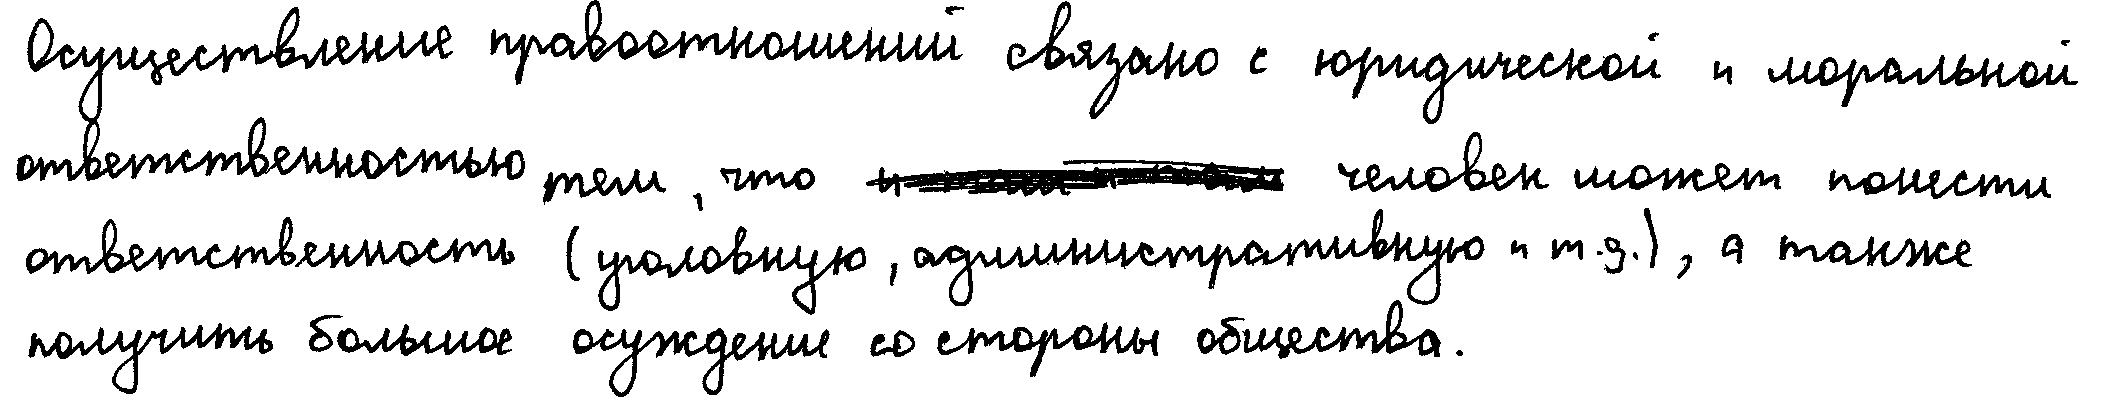 Осуществление правоотношений связано с юридической и моральной
ответственностью тем, что человек может понести
ответственность (уголовную, административную и т.д.), а также
получить большое осуждение со стороны общества.